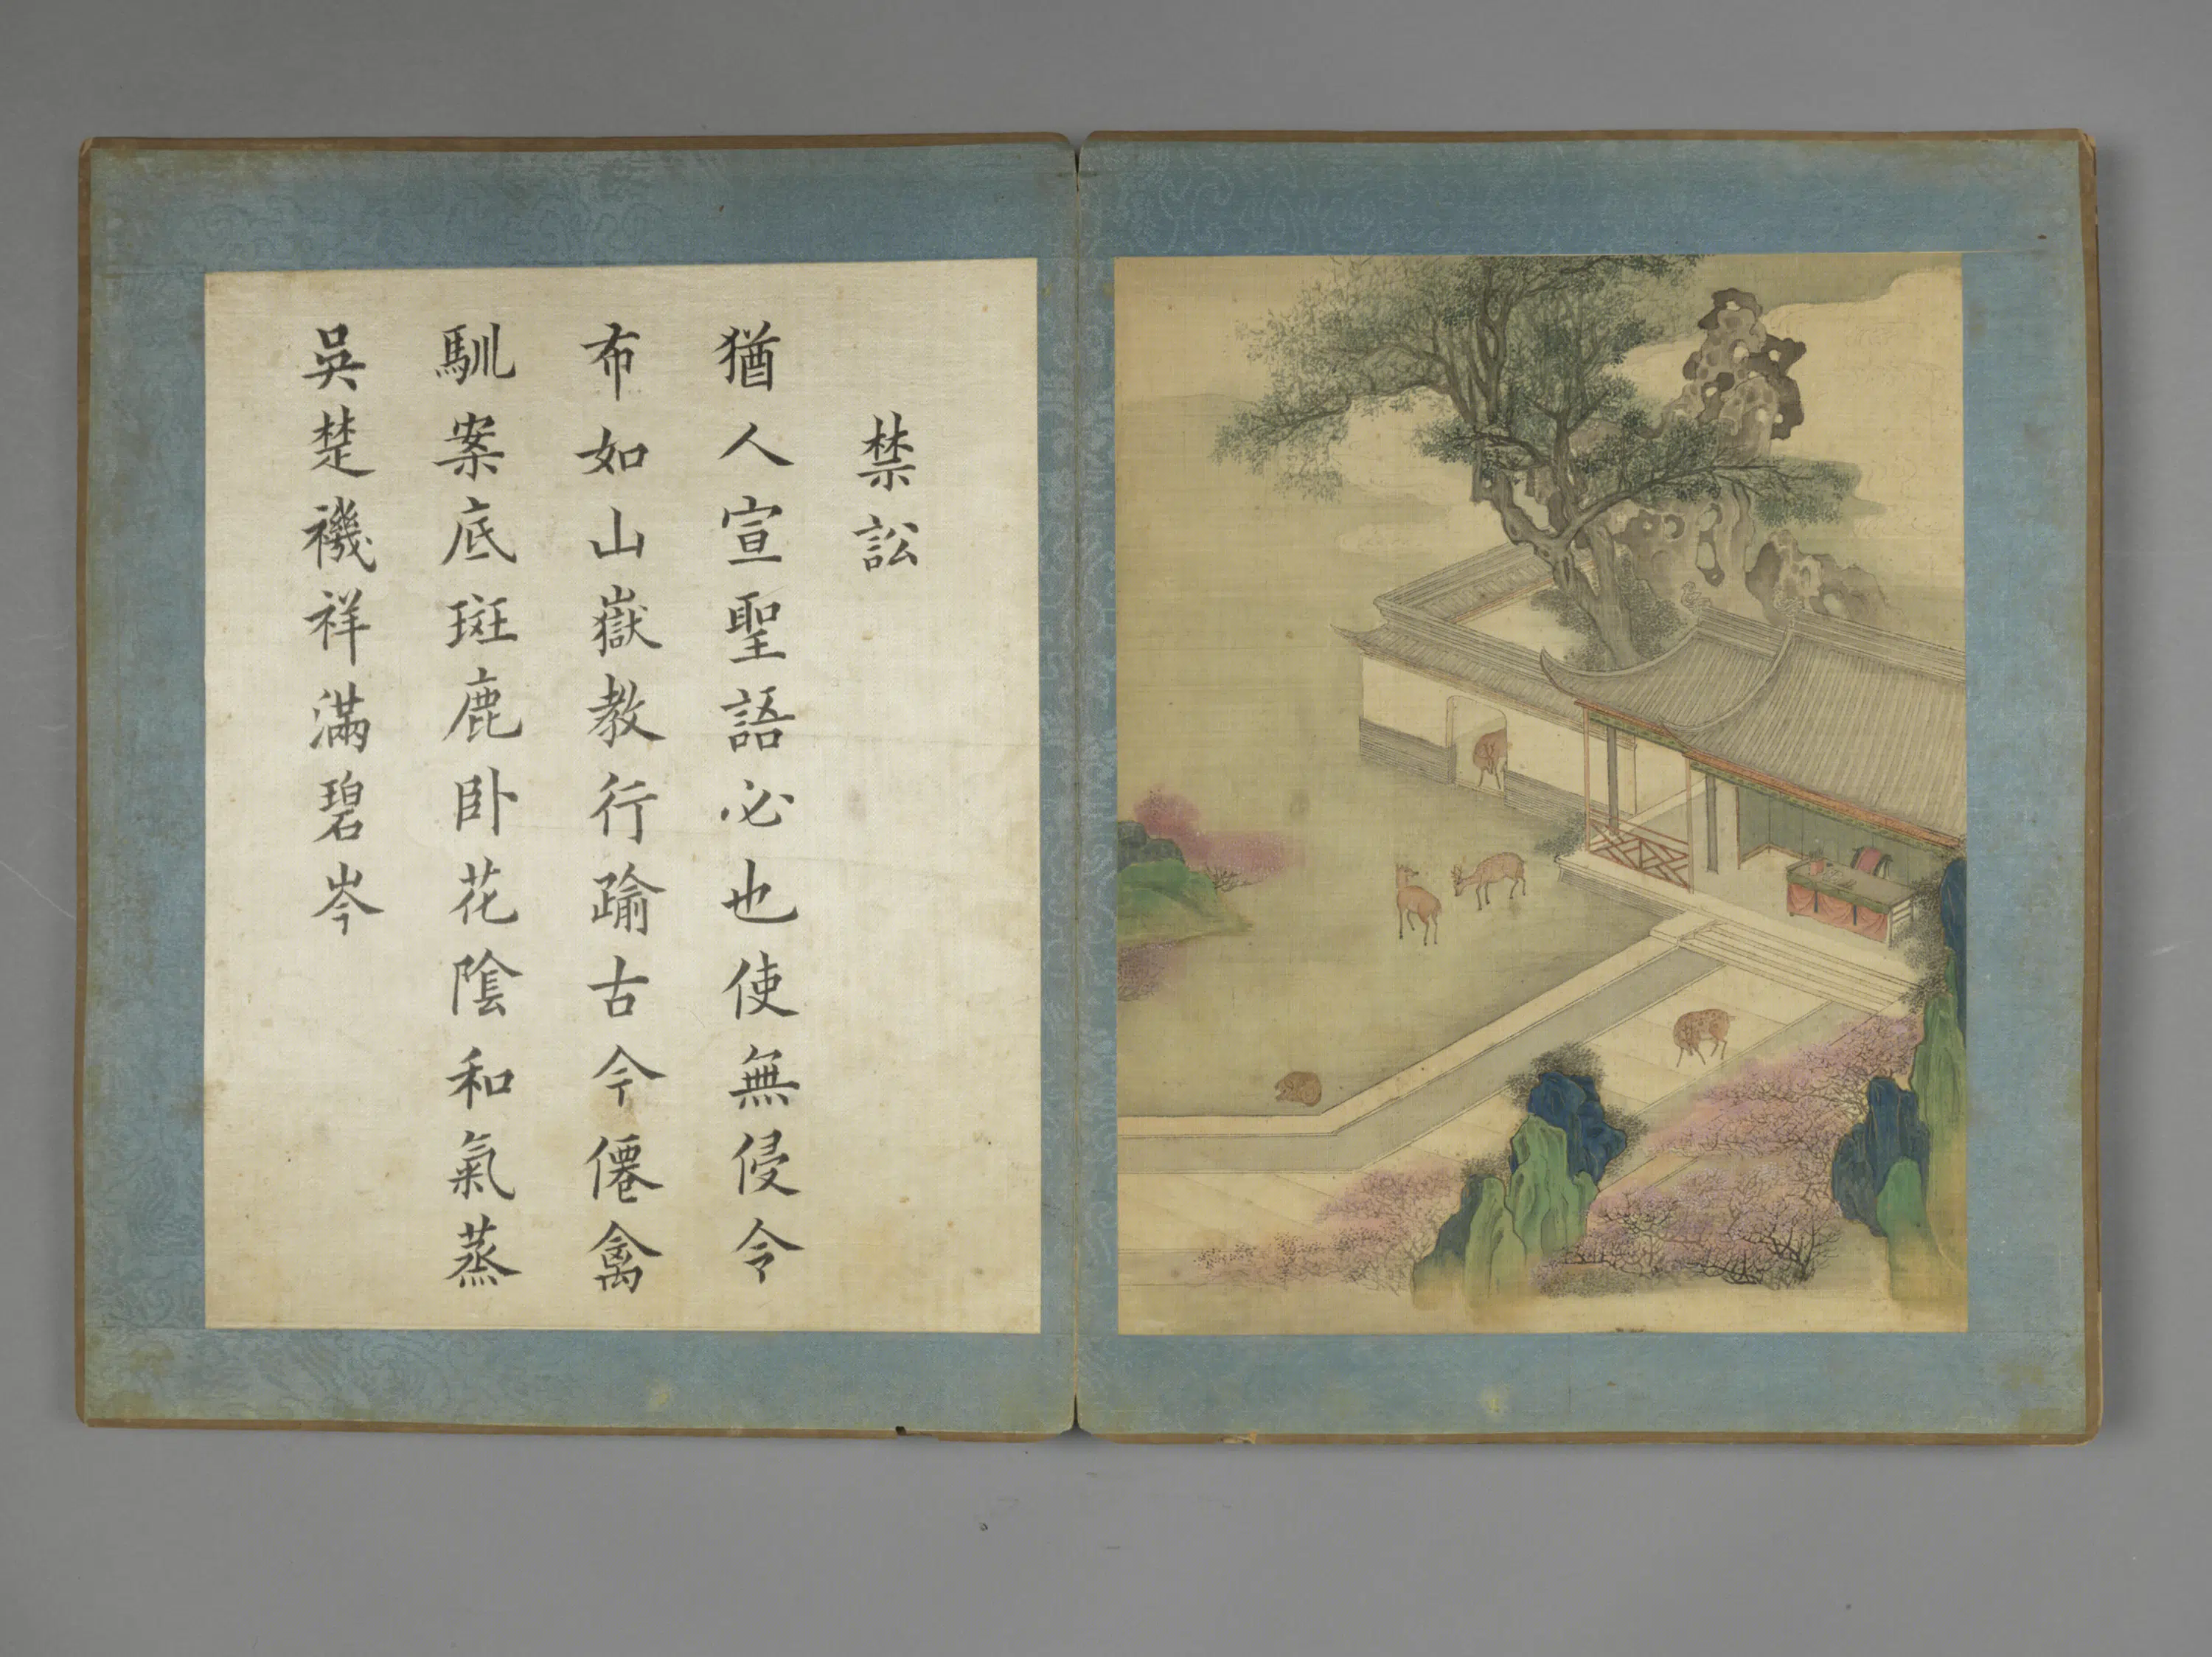 禁訟
猶人宣聖語必也使無侵令
布如山嶽教行踰古今僊禽
馴案底斑鹿卧花陰和氣蒸
吳楚禨祥滿碧岑